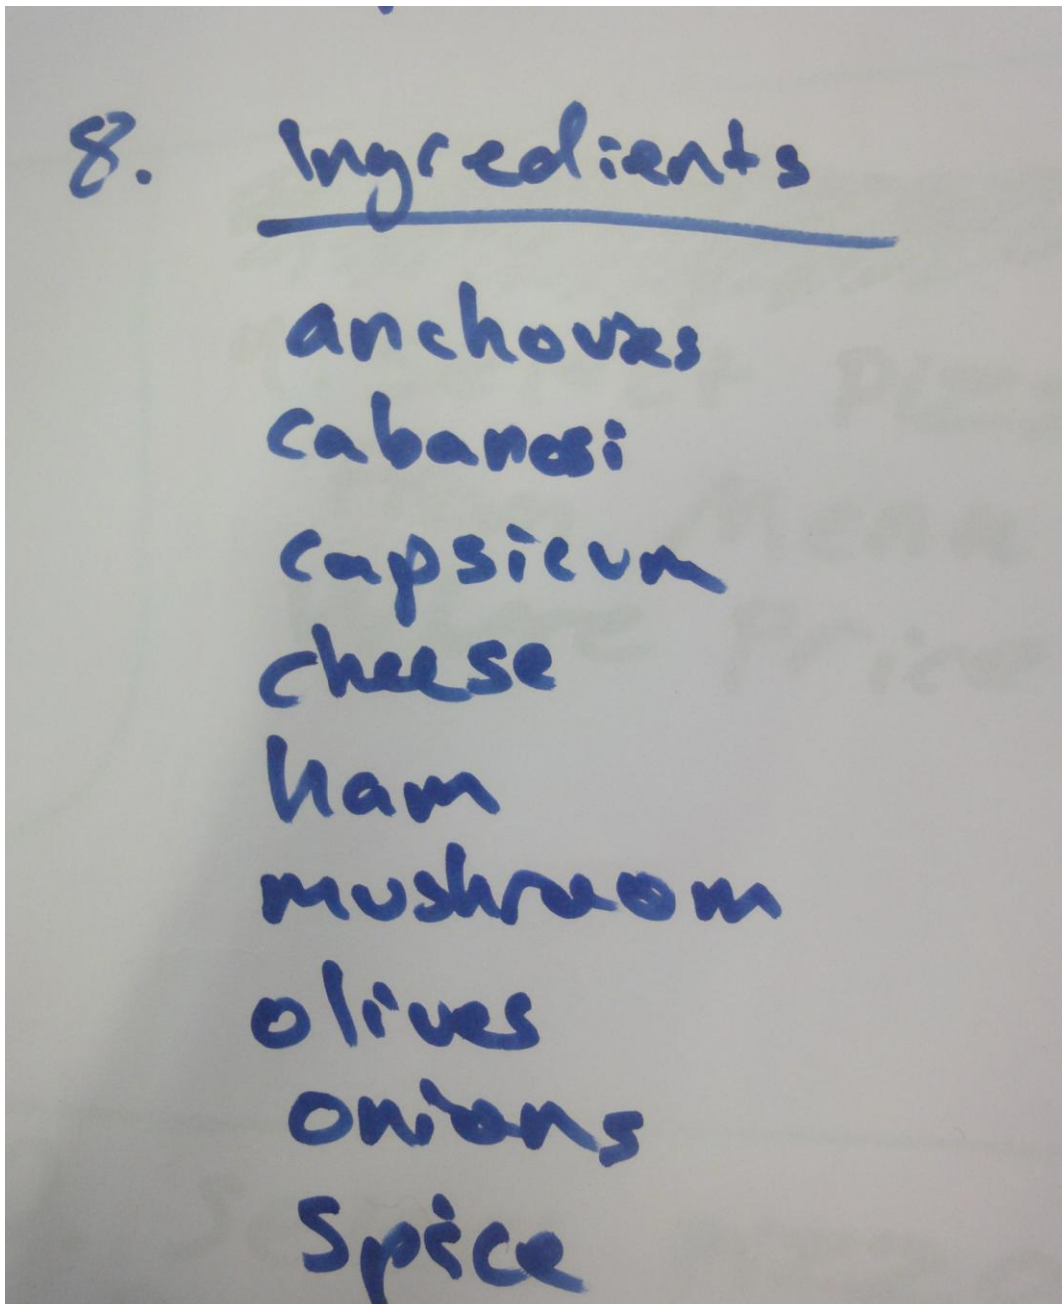 8. Ingredients
anchovies
cabanosi
capsicum
cheese
ham
mushroom
olives
onions
Spice